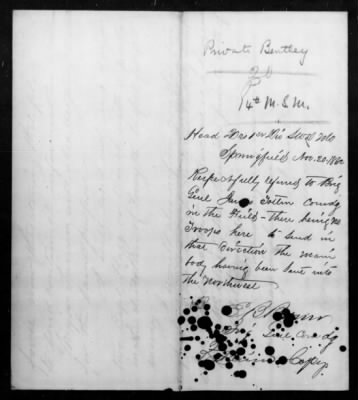 Private Bentley
14th M.S.M.
Head Qrs Dis S.W. Mo
Springfield Nov. 20. 1862
Respectfully referred to Brig
Genl James Totten comdg
in the Field - there being no
Troops here to send in
that direction the main
body having been sent into
the Northwest
Brown
Genl Comdg
Copy